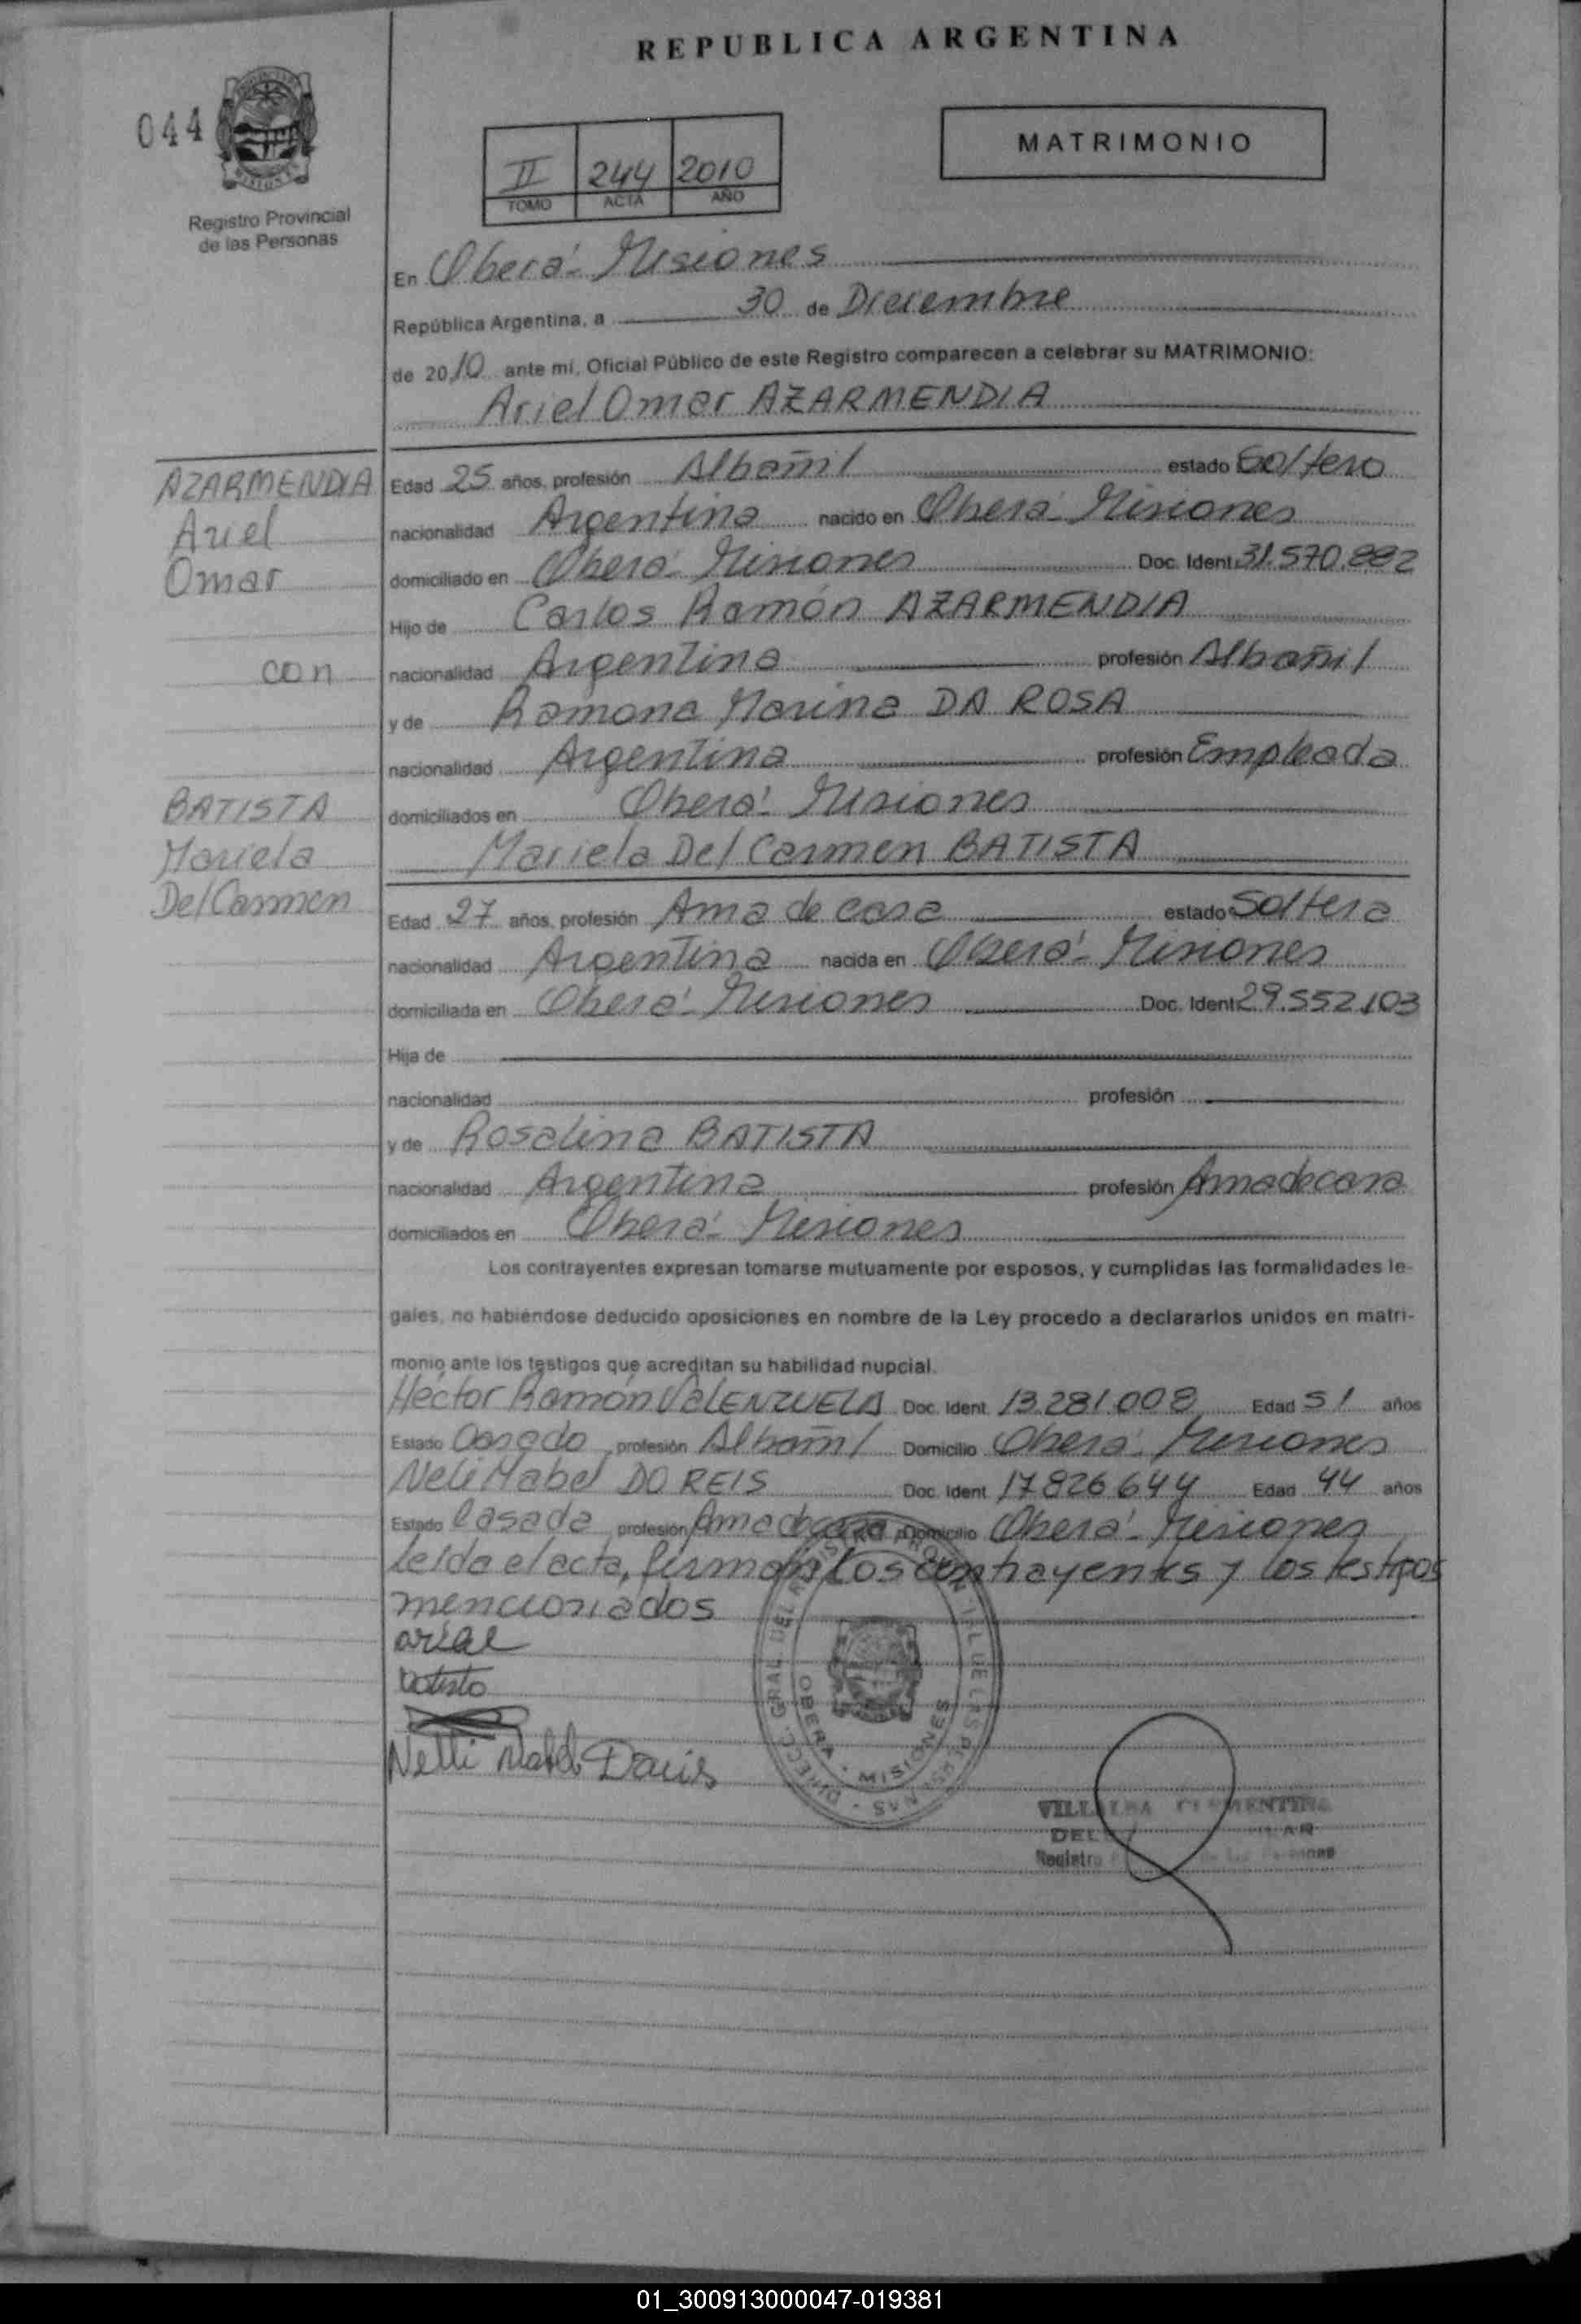 REPUBLICA ARGENTINA
044
Registro Provincial
de las Personas
MATRIMONIO
II 244 2010
TOMO ACTA AÑO
En Oberá - Misiones
República Argentina, a 30 de Diciembre
de 2010 ante mí, Oficial Público de este Registro comparecen a celebrar su MATRIMONIO:
Ariel Omar AZARMENDIA
AZARMENDIA
Ariel
Omar
con
BATISTA
Mariela
Del Carmen
Edad 25 años, profesión Albañil estado Soltero
nacionalidad Argentina nacido en Oberá - Misiones
domiciliado en Oberá - Misiones Doc. Ident 31.570.882
Hijo de Carlos Ramón AZARMENDIA
nacionalidad Argentina profesión Albañil
y de Ramona Marina DA ROSA
nacionalidad Argentina profesión Empleada
domiciliados en Oberá - Misiones
Mariela Del Carmen BATISTA
Edad 27 años, profesión Ama de casa estado Soltera
nacionalidad Argentina nacida en Oberá - Misiones
domiciliada en Oberá - Misiones Doc. Ident 29.552.103
Hija de
nacionalidad profesión
y de Rosalina BATISTA
nacionalidad Argentina profesión Ama de casa
domiciliados en Oberá - Misiones
Los contrayentes expresan tomarse mutuamente por esposos, y cumplidas las formalidades le-
gales, no habiéndose deducido oposiciones en nombre de la Ley procedo a declararlos unidos en matri-
monio ante los testigos que acreditan su habilidad nupcial.
Héctor Ramón VALENZUELA Doc. Ident. 13.281.008 Edad 51 años
Estado Casado profesión Albañil Domicilio Oberá - Misiones
Neli Mabel DO REIS Doc. Ident 17826644 Edad 44 años
Estado Casada profesión Ama de casa Domicilio Oberá - Misiones
Leída el acta, firman los contrayentes y los testigos
mencionados
ariel
batista
Nelli Mabel
OBERA - MISIONES
VILLALBA CLEMENTINA
Registro
01_300913000047-019381